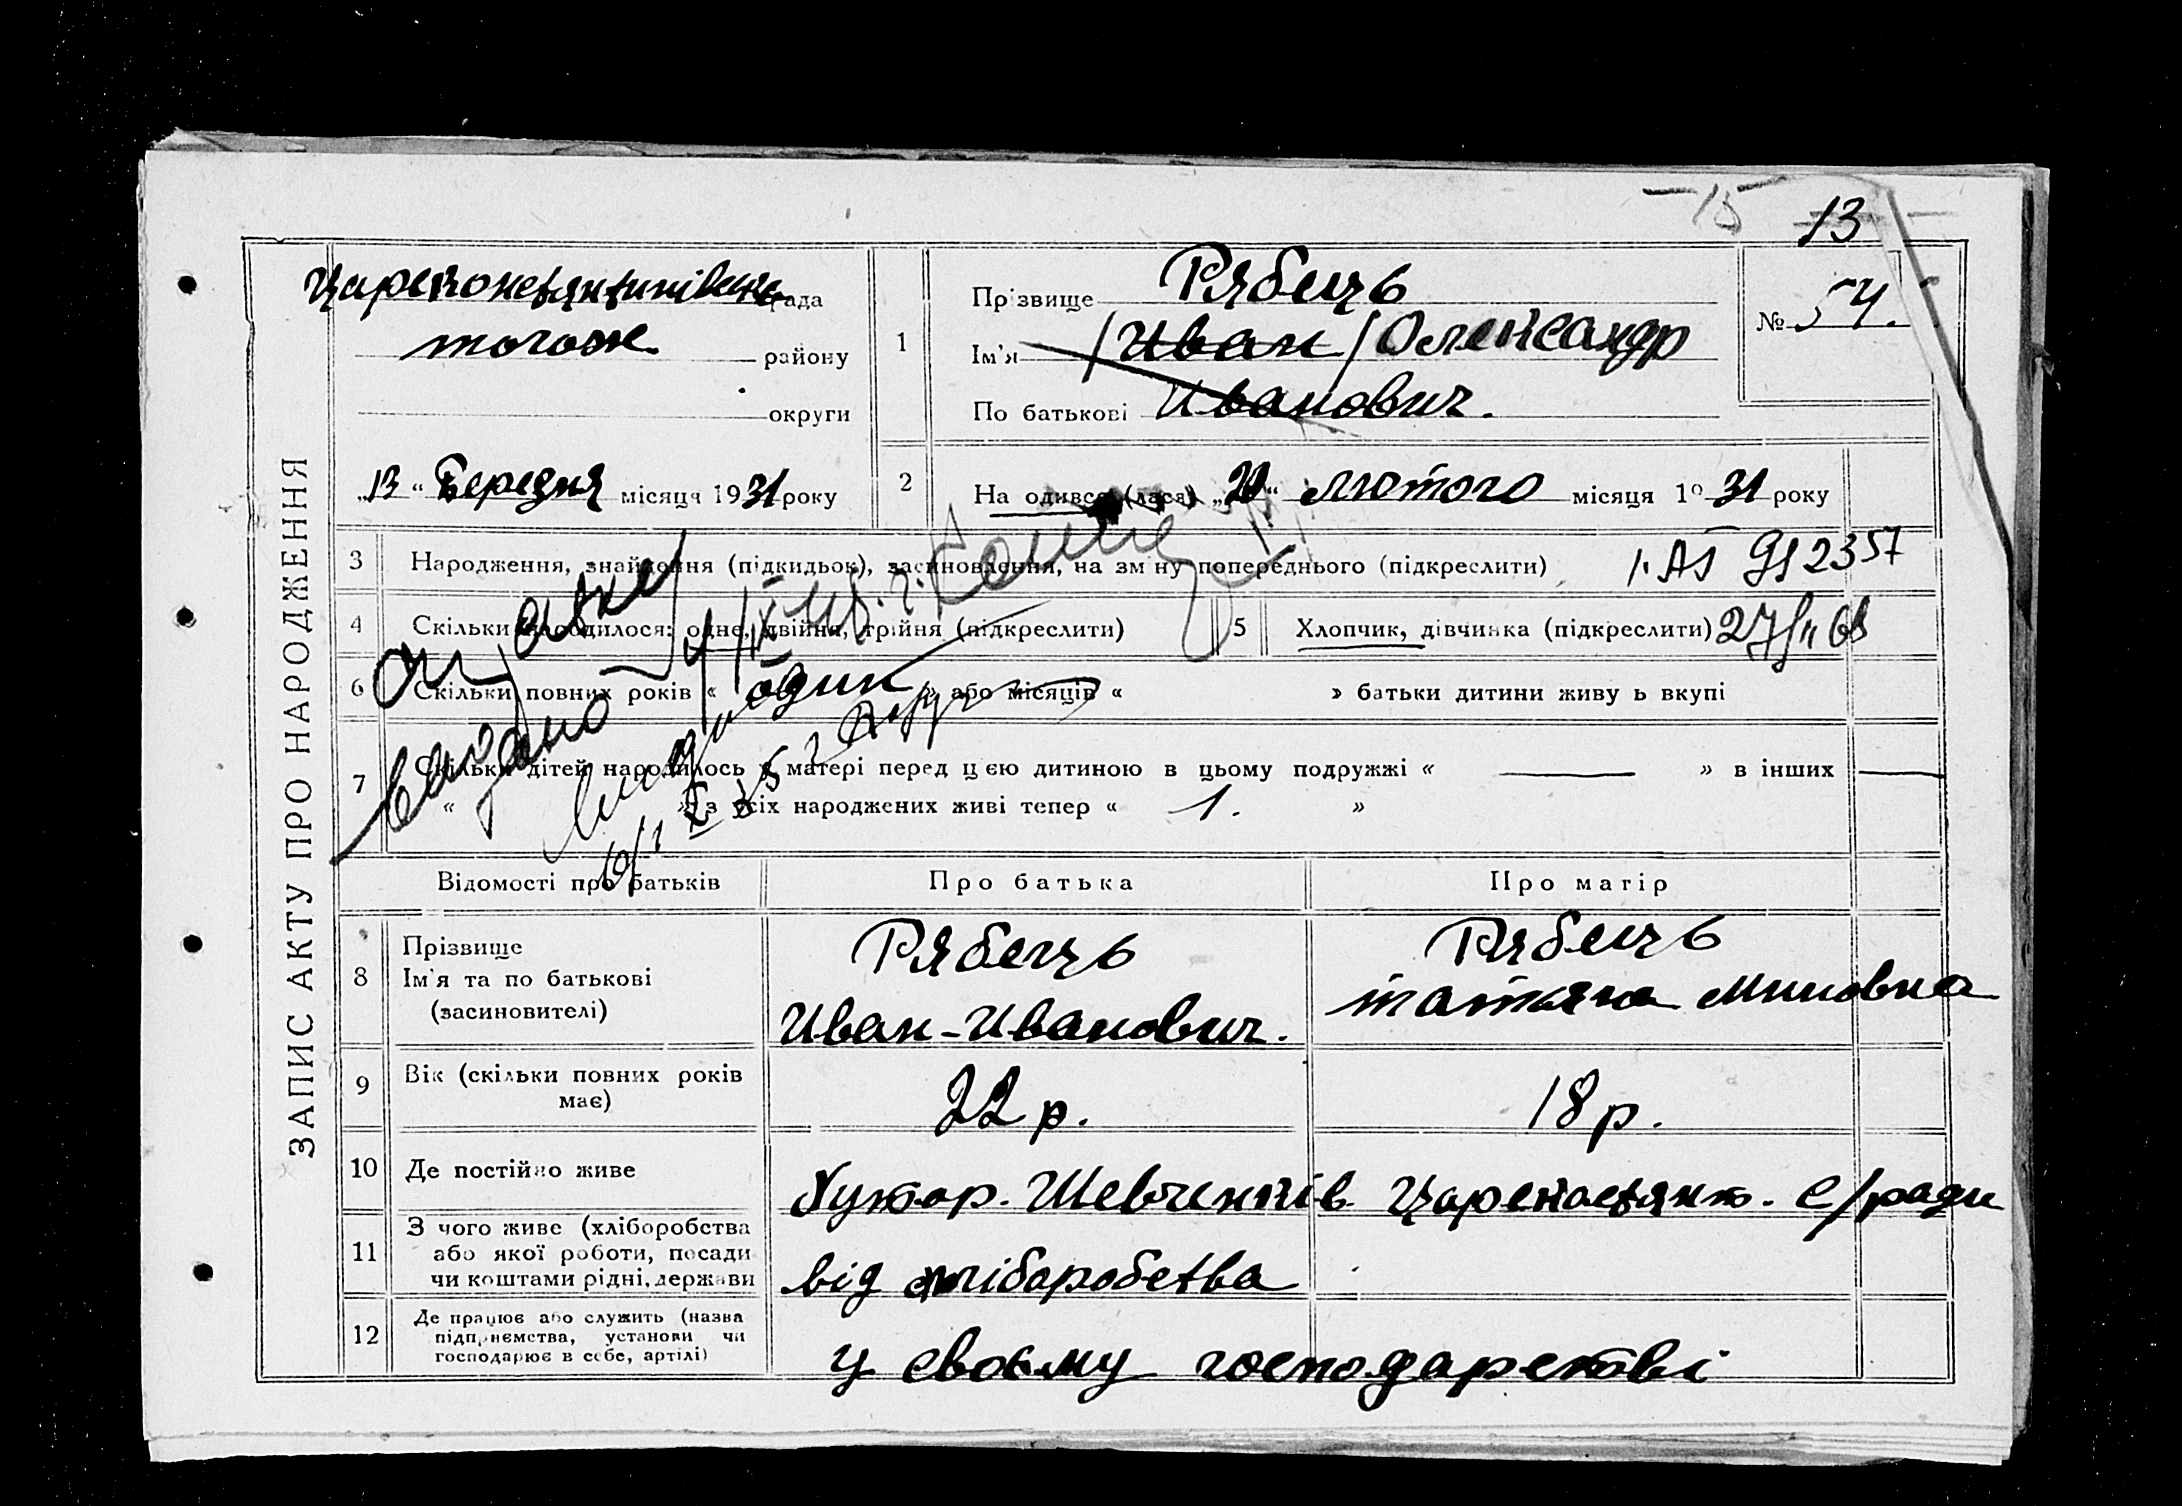 15 13
ЗАПИС АКТУ ПРО НАРОДЖЕННЯ
рада
тогож району
округи
„13“ Березня місяця 1931 року
1
Прізвище Рябець
Ім'я /Иван/ Олександр
По батькові Иванович.
№ 54.
2
На одився (лася) „20“ лютого місяця 19 31 року
3 Народження, знайдення (підкидьок), засиновлення, на зм ну попереднього (підкреслити)
1. АЅ 912357
4 Скільки народилося: одне, двійня, трійня (підкреслити)
5 Хлопчик, дівчинка (підкреслити)
6 Скільки повних років « один » або місяців « » батьки дитини живу ь вкупі
7 Скільки дітей народилось у матері перед цією дитиною в цьому подружжі « — » в інших —
« » з усіх народжених живі тепер « 1. »
видано
Відомості про батьків Про батька Про матір
8 Прізвище
Ім'я та по батькові
(засиновителі)
Рябець
Иван-Иванович.
Рябець
татьяна Миновна
9 Вік (скільки повних років має)
22 р. 18 р.
10 Де постійно живе
Хутор. Шевченків Царекостянт. с/ради
11 З чого живе (хліборобства
або якої роботи, посади
чи коштами рідні, держави
від хліборобства
12 Де працює або служить (назва
підприємства, установи чи
господарює в себе, артілі)
у своєму господарстві